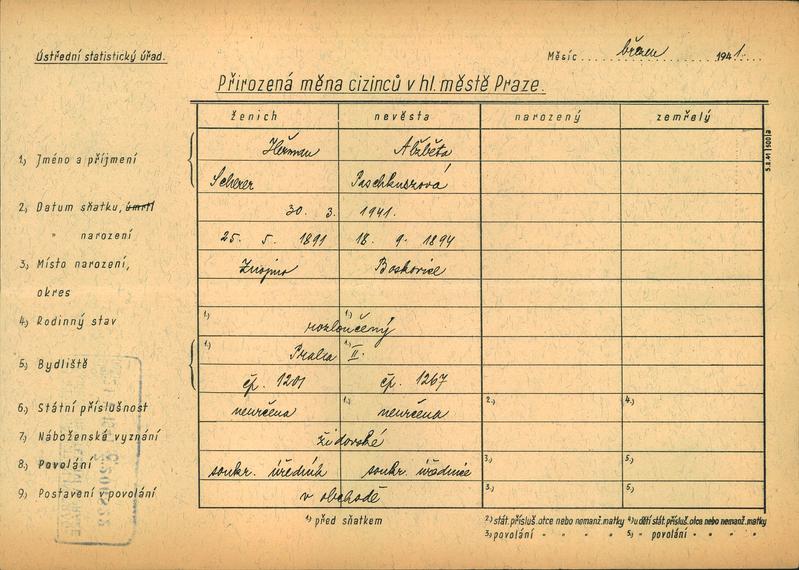 Ústřední statistický úřad.
Měsíc březen 1941.
Přirozená měna cizinců v hl. městě Praze.
ženich nevěsta narozený zemřelý
1) Jméno a příjmení Heřman Alžběta
Scherer Paschkuszová
2) Datum sňatku, úmrtí 30. 3. 1941.
" narození 25. 5. 1891 18. 9. 1894
3) Místo narození, Znojmo Boskovice
okres
4) Rodinný stav 1) rozloučený 1)
5) Bydliště 1) Praha 1) II.
čp. 1201 čp. 1267
6) Státní příslušnost neurčena 1) neurčena 2) 4)
7) Náboženské vyznání židovské
8) Povolání soukr. úředník soukr. úřednice 3) 5)
9) Postavení v povolání v obchodě 3) 5)
1) před sňatkem 2) stát. přísluš. otce nebo nemanž. matky 4) u dětí stát. přísluš. otce nebo nemanž. matky
3) povolání " " " " 5) " povolání " " " "